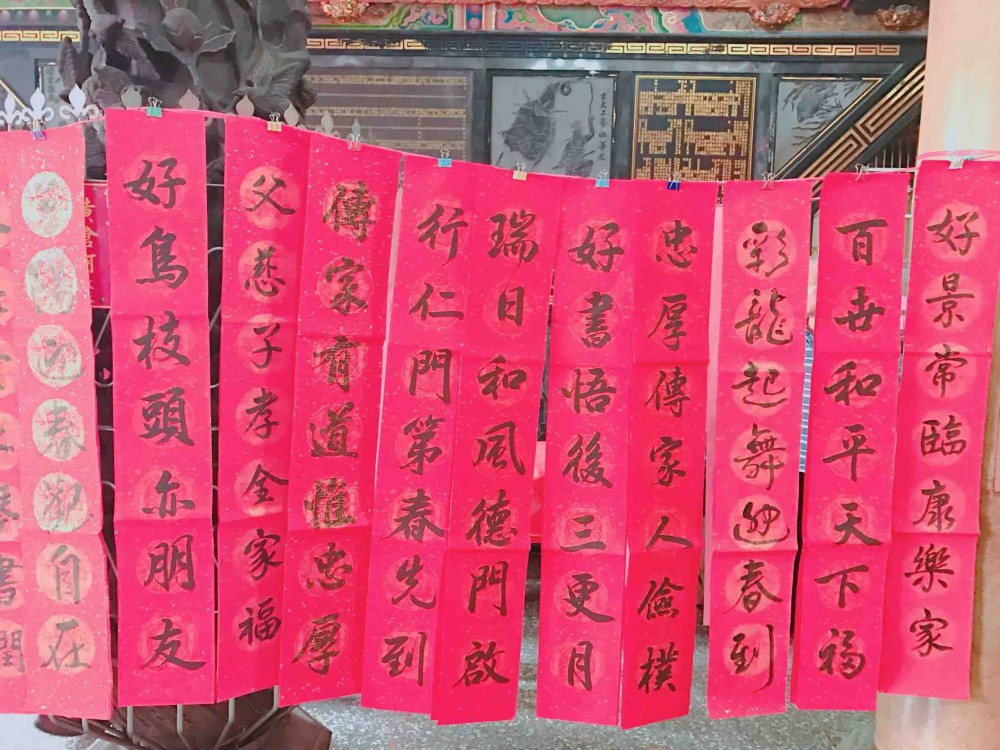 好景常臨康樂家
百世和平天下福
彩龍起舞迎春到
忠厚傳家人儉樸
好書悟後三更月
瑞日和風德門啟
行仁門第春先到
傳家有道惟忠厚
父慈子孝全家福
好鳥枝頭亦朋友
春觀自在
書潤